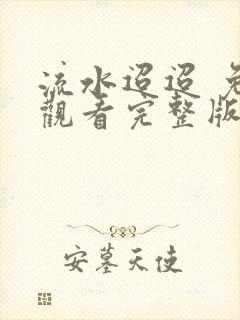 流水迢迢 免
觀看完整版
安墓天使